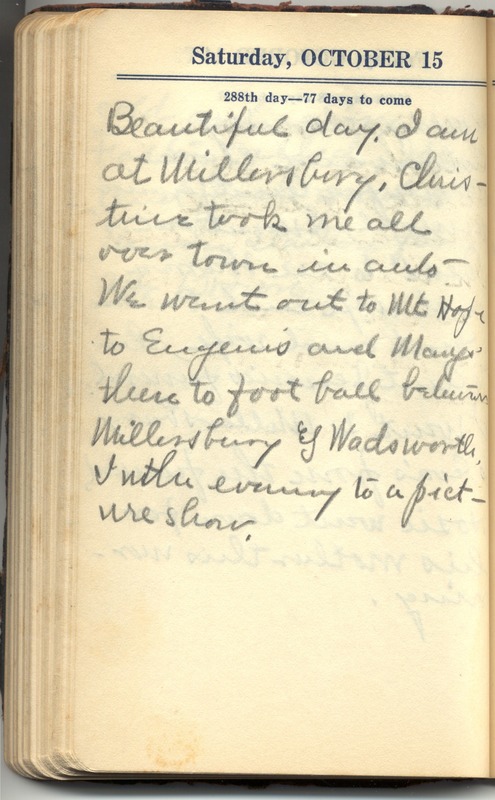 Saturday, OCTOBER 15
288th day—77 days to come
Beautiful day. I am
at Millersburg, Chris-
tine took me all
over town in auto
We went out to Mt Hope
to Eugenis and Marys
then to foot ball between
Millersburg & Wadsworth,
In the evening to a pict-
ure show.